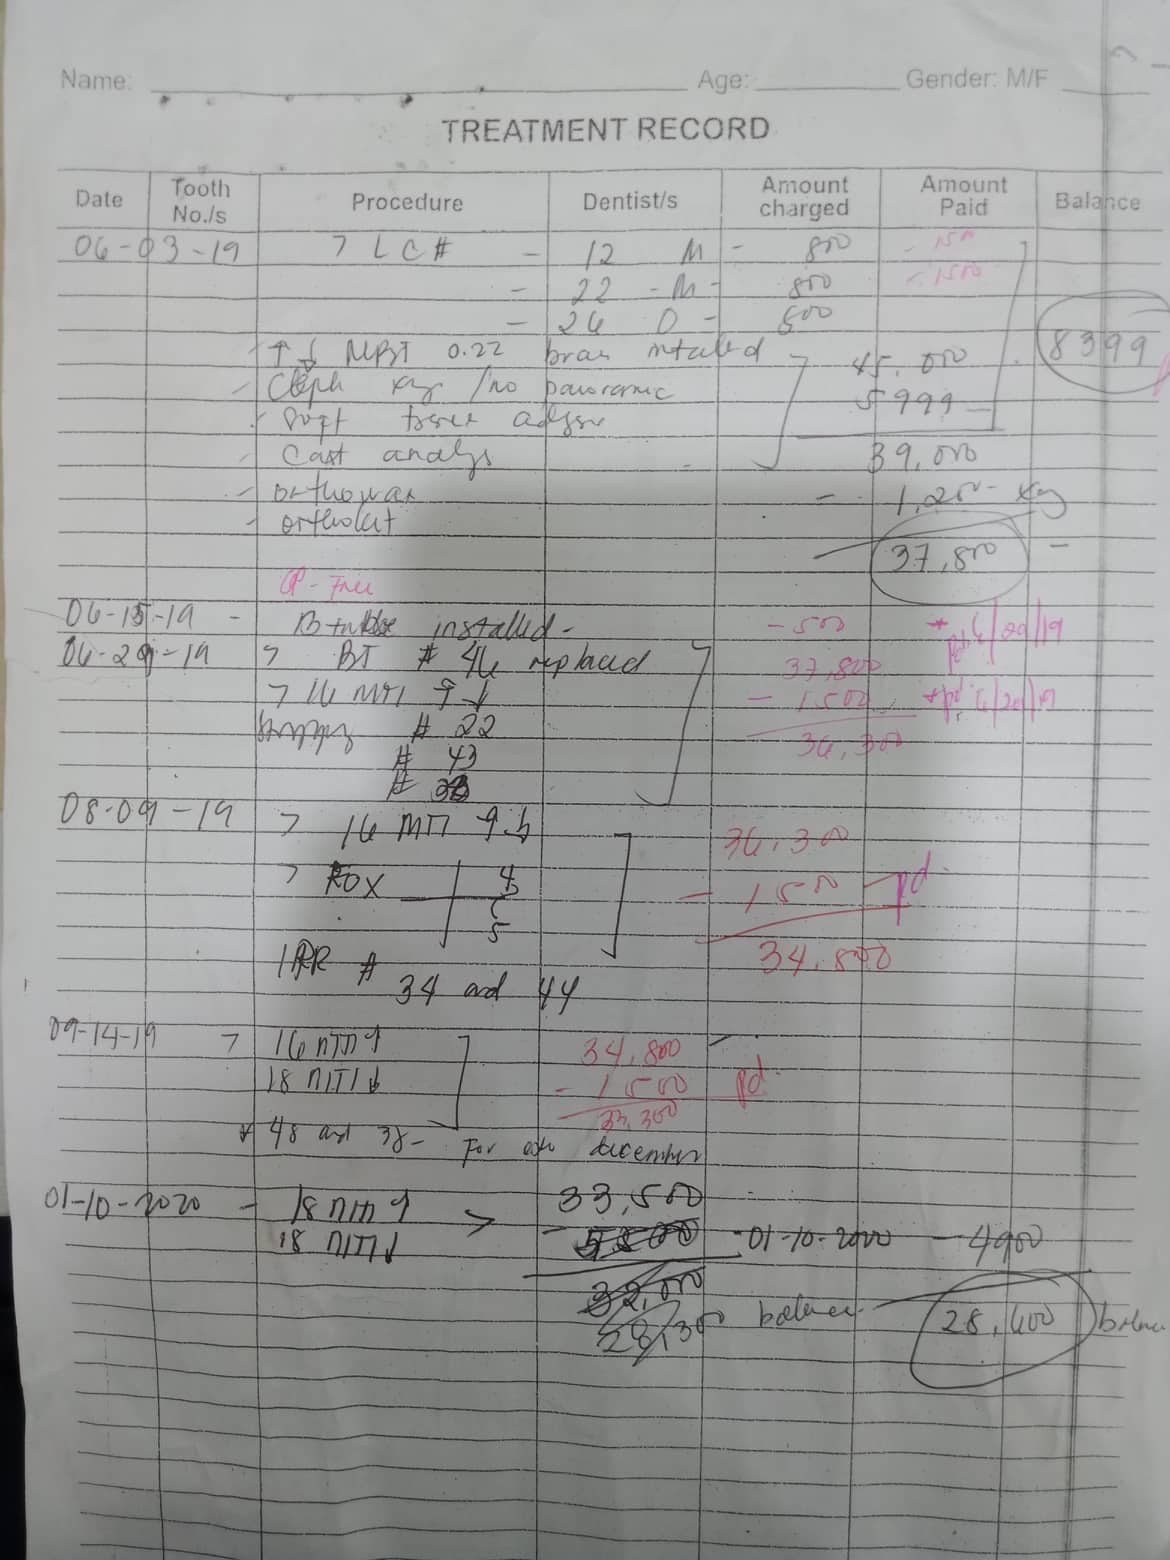 Name: Age: Gender: M/F
TREATMENT RECORD
Date Tooth No./s Procedure Dentist/s Amount charged Amount Paid Balance
06-03-19 > LC# - 12 M - 800
- 22 - M - 800 1500
- 26 O - 600
↑ ↓ MBT 0.22 braces 45,000 8399
Ceph xray /no panoramic 5999
39,000
Cast analys
orthowax - 1,200 - xray
orthokit
37,800 -
OP - Free
06-15-19 - B-tube installed - - 500
06-29-19 > BT # 46 replaced 37,800
> 16 NITI ↑ ↓ - 1,500 pd. 6/29/19
# 22 36,300
# 43
#
08-09-19 > 16 NITI ↑ ↓ 36,300
> - 1500 pd.
5 34,800
IPR # 34 and 44
09-14-19 > 16 NITI ↑ 34,800
18 NITI ↓ - 1500 pd.
33,300
* 48 and 38 - For december
01-10-2020 - 18 NITI ↑ > 33,500
18 NITI ↓ - 01-10-2020 - 4900
32,000
28,300 balance 28,400 balance